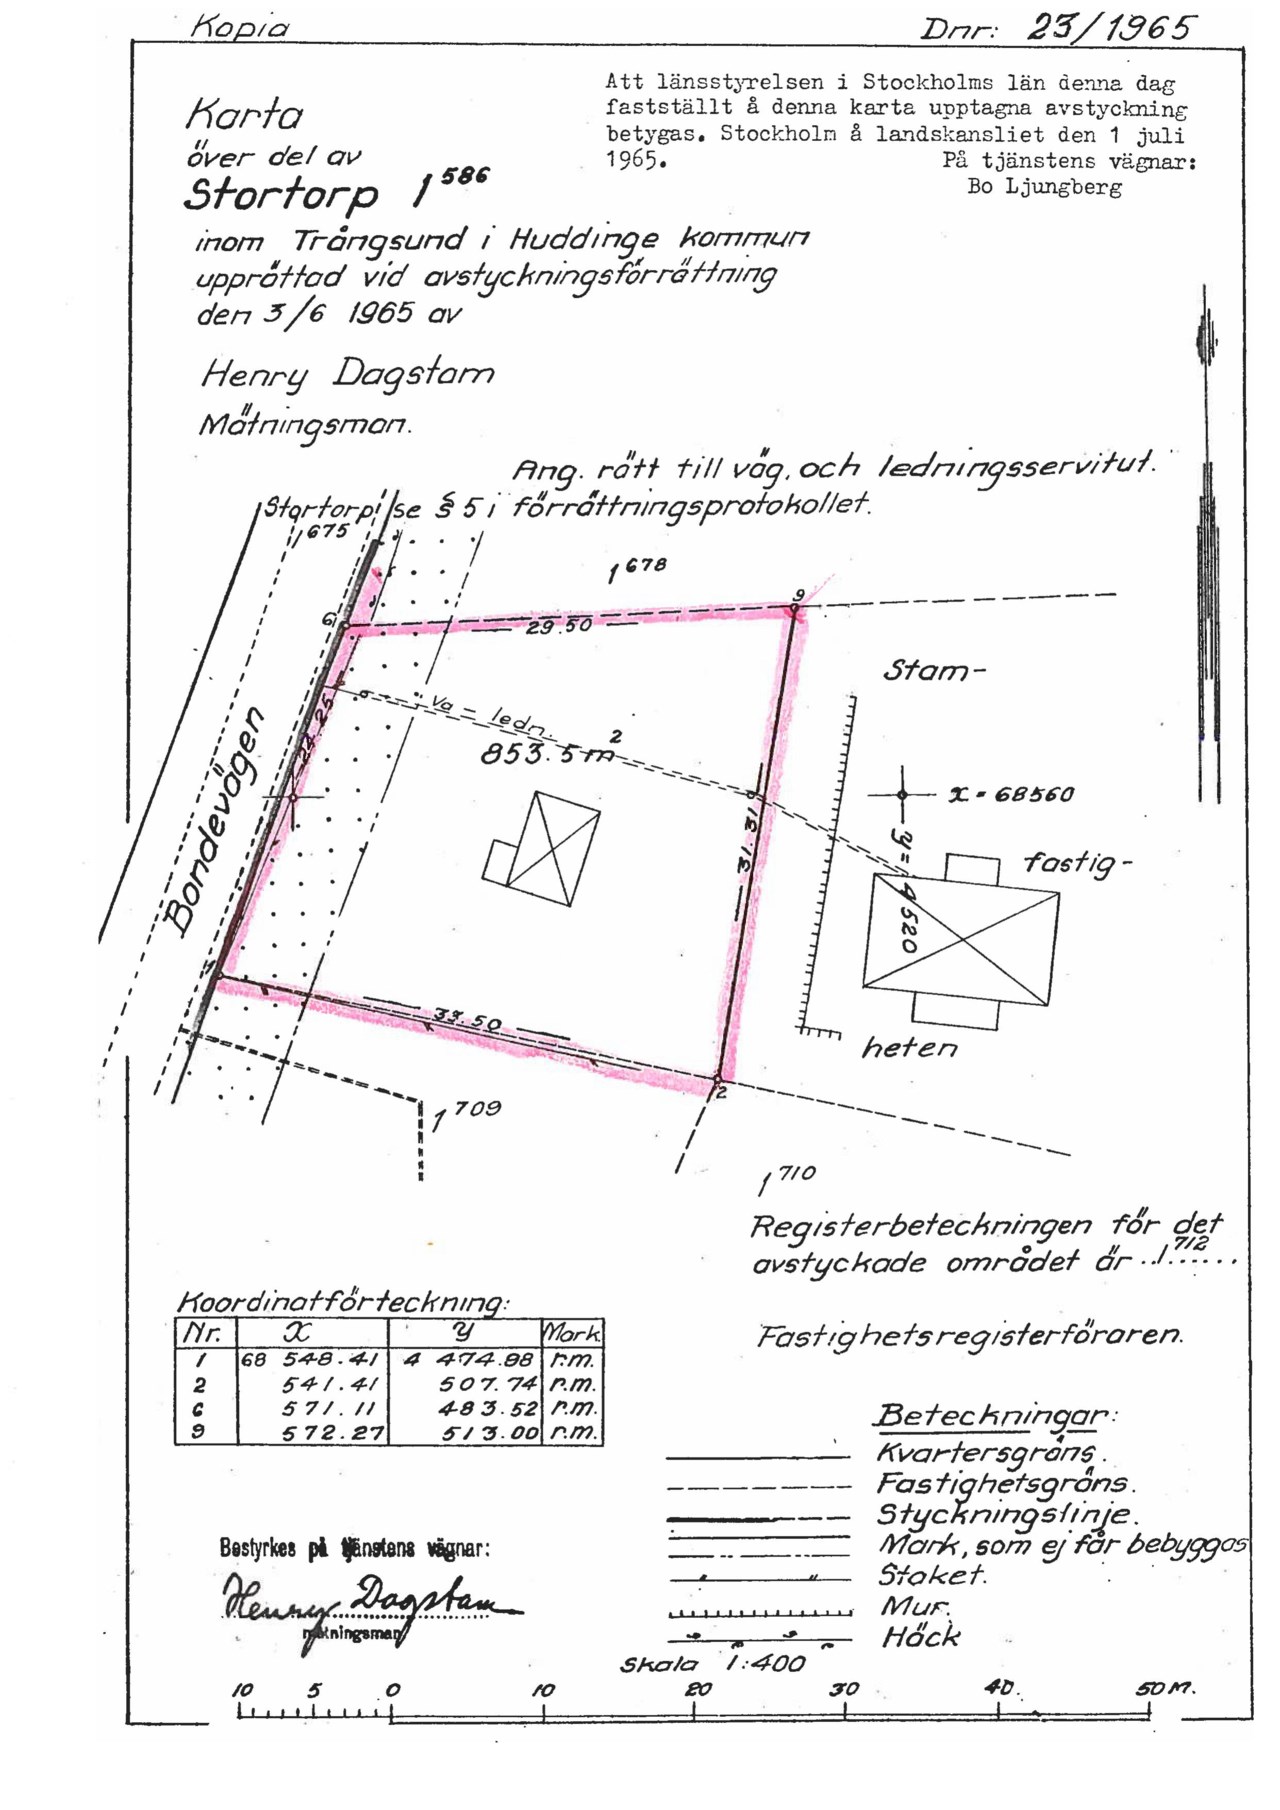 Kopia
Dnr: 23/1965
Att länsstyrelsen i Stockholms län denna dag
fastställt å denna karta upptagna avstyckning
betygas. Stockholm å landskansliet den 1 juli
1965. På tjänstens vägnar:
Bo Ljungberg
Karta
över del av
Stortorp 1 586
inom Trångsund i Huddinge kommun
upprättad vid avstyckningsförrättning
den 3/6 1965 av
Henry Dagstam
Mätningsman.
Ang. rätt till väg, och ledningsservitut.
se § 5 i förrättningsprotokollet.
Stortorp
1 675
1 678
6
9
29.50
Stam-
24.25
Va - ledn.
853.5 m2
Bondevägen
x = 68560
y = 4520
31.31
fastig-
heten
1
33.50
2
1 709
1 710
Registerbeteckningen för det
avstyckade området är ..1 712......
Fastighetsregisterföraren.
Koordinatförteckning:
Nr. X Y Mark
1 68 548.41 4 474.98 r.m.
2 541.41 507.74 r.m.
6 571.11 483.52 r.m.
9 572.27 513.00 r.m.
Beteckningar:
Kvartersgräns.
Fastighetsgräns.
Styckningslinje.
Mark, som ej får bebyggas
Staket.
Mur.
Häck
Bestyrkes på tjänstens vägnar:
Henry Dagstam
mätningsman
Skala 1:400
10 5 0 10 20 30 40 50 m.